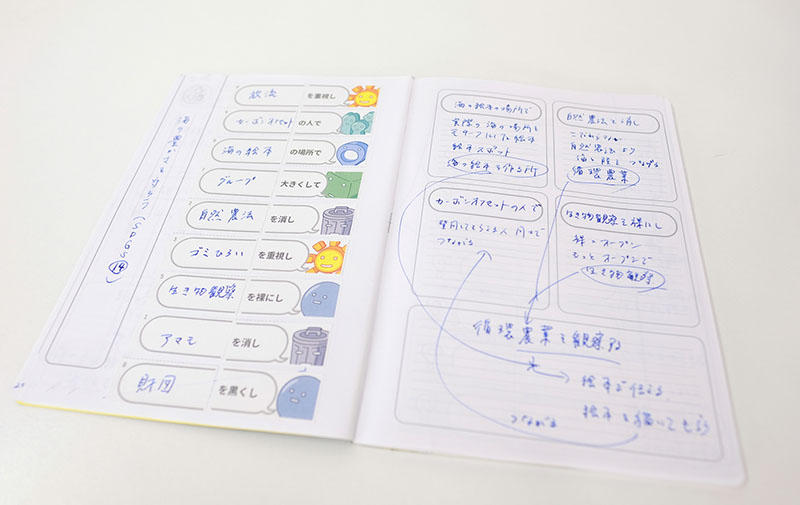 海の豊かさを守ろう (SDGs 14)
放流 を重視し
カーボンオフセット の人で
海の絵本 の場所で
グループ 大きくして
自然農法 を消し
ゴミひろい を重視し
生き物観察 を裸にし
アマモ を消し
財団 を黒くし
海の絵本の場所で
実際の海の場所を
モチーフにした絵本
絵本スポット
海の絵本を作る所
自然農法を消し
自然農法より
海と陸をつなげる
循環農業
カーボンオフセットの人で
つながる
生き物観察を裸にし
裸=オープン
もっとオープンで
生き物観察
循環農業を観察する
絵本で伝える
絵本を描いてもらう
つながる